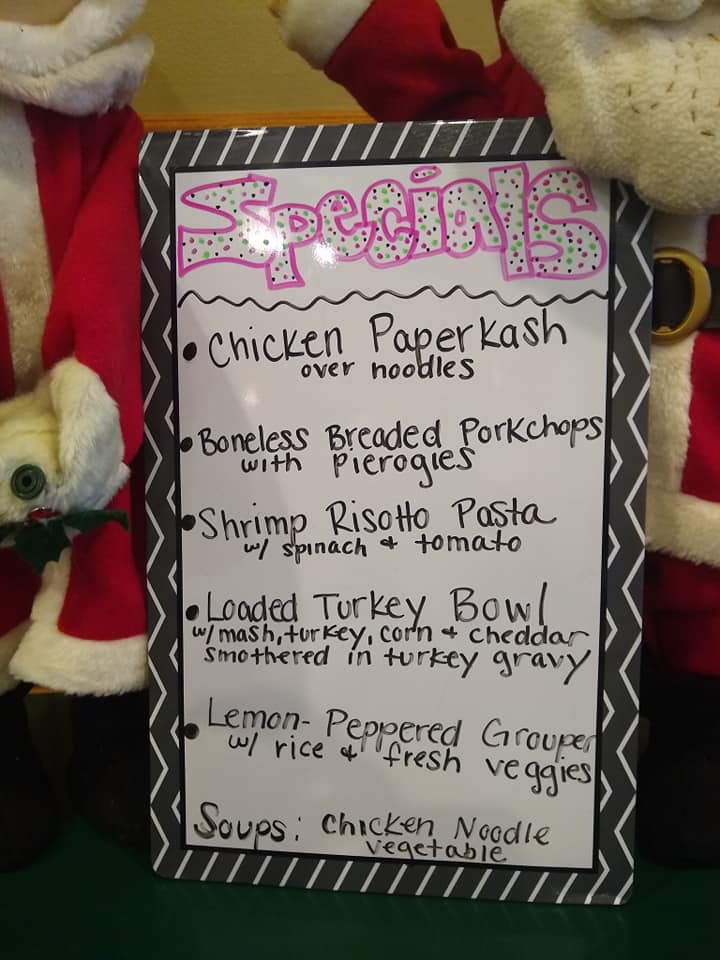 Specials
• Chicken Paperkash
over noodles
• Boneless Breaded Porkchops
with pierogies
• Shrimp Risotto Pasta
w/ spinach & tomato
• Loaded Turkey Bowl
w/ mash, turkey, corn & cheddar
smothered in turkey gravy
• Lemon-Peppered Grouper
w/ rice & fresh veggies
Soups: Chicken Noodle
vegetable